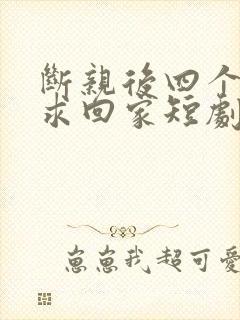 斷親後四个
求回家短劇
崽崽我超可愛